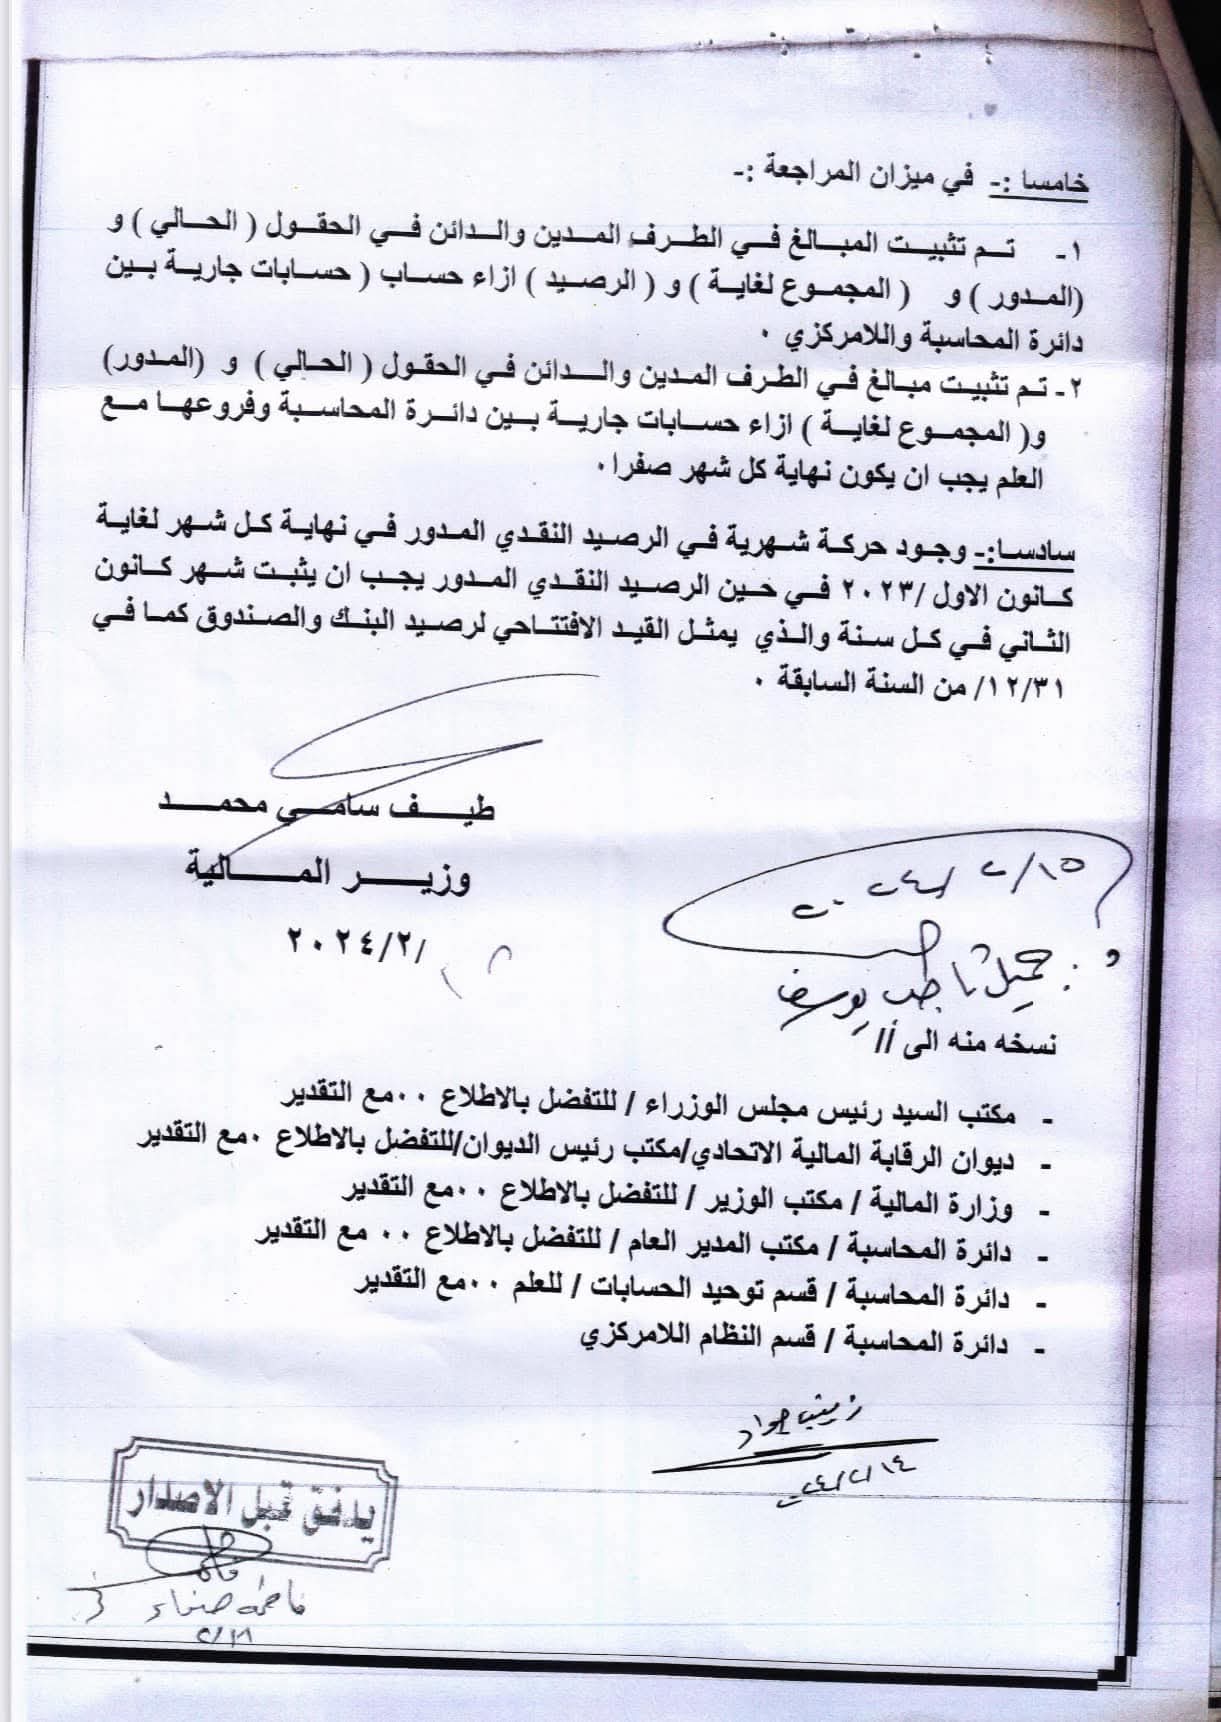 خامسا :- في ميزان المراجعة :-
١- تم تثبيت المبالغ في الطرف المدين والدائن في الحقول ( الحالي ) و
(المدور ) و ( المجموع لغاية ) و ( الرصيد ) ازاء حساب ( حسابات جارية بين
دائرة المحاسبة واللامركزي ٠
٢- تم تثبيت مبالغ في الطرف المدين والدائن في الحقول ( الحالي ) و (المدور)
و( المجموع لغاية ) ازاء حسابات جارية بين دائرة المحاسبة وفروعها مع
العلم يجب ان يكون نهاية كل شهر صفرا ٠
سادسا:- وجود حركة شهرية في الرصيد النقدي المدور في نهاية كل شهر لغاية
كانون الاول /٢٠٢٣ في حين الرصيد النقدي المدور يجب ان يثبت شهر كانون
الثاني في كل سنة والذي يمثل القيد الافتتاحي لرصيد البنك والصندوق كما في
١٢/٣١/ من السنة السابقة ٠
طيف سامي محمد
وزير المالية
/٢٠٢٤/٢
٢/١٥
يوسف
نسخه منه الى //
- مكتب السيد رئيس مجلس الوزراء / للتفضل بالاطلاع ٠٠مع التقدير
- ديوان الرقابة المالية الاتحادي/مكتب رئيس الديوان/للتفضل بالاطلاع ٠مع التقدير
- وزارة المالية / مكتب الوزير / للتفضل بالاطلاع ٠٠مع التقدير
- دائرة المحاسبة / مكتب المدير العام / للتفضل بالاطلاع ٠٠ مع التقدير
- دائرة المحاسبة / قسم توحيد الحسابات / للعلم ٠٠مع التقدير
- دائرة المحاسبة / قسم النظام اللامركزي
زينب جواد
٢/١٤
يدقق قبل الاصدار
فاطمة صفاء